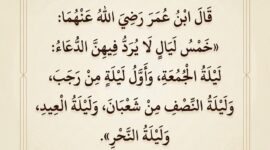 قَالَ ابْنُ عُمَرَ رَضِيَ اللهُ عَنْهُمَا:
«خَمْسُ لَيَالٍ لَا يُرَدُّ فِيهِنَّ الدُّعَاءُ:
لَيْلَةُ الْجُمُعَةِ، وَأَوَّلُ لَيْلَةٍ مِنْ رَجَبَ،
وَلَيْلَةُ النِّصْفِ مِنْ شَعْبَانَ، وَلَيْلَةُ الْعِيدِ،
وَلَيْلَةُ النَّحْرِ».